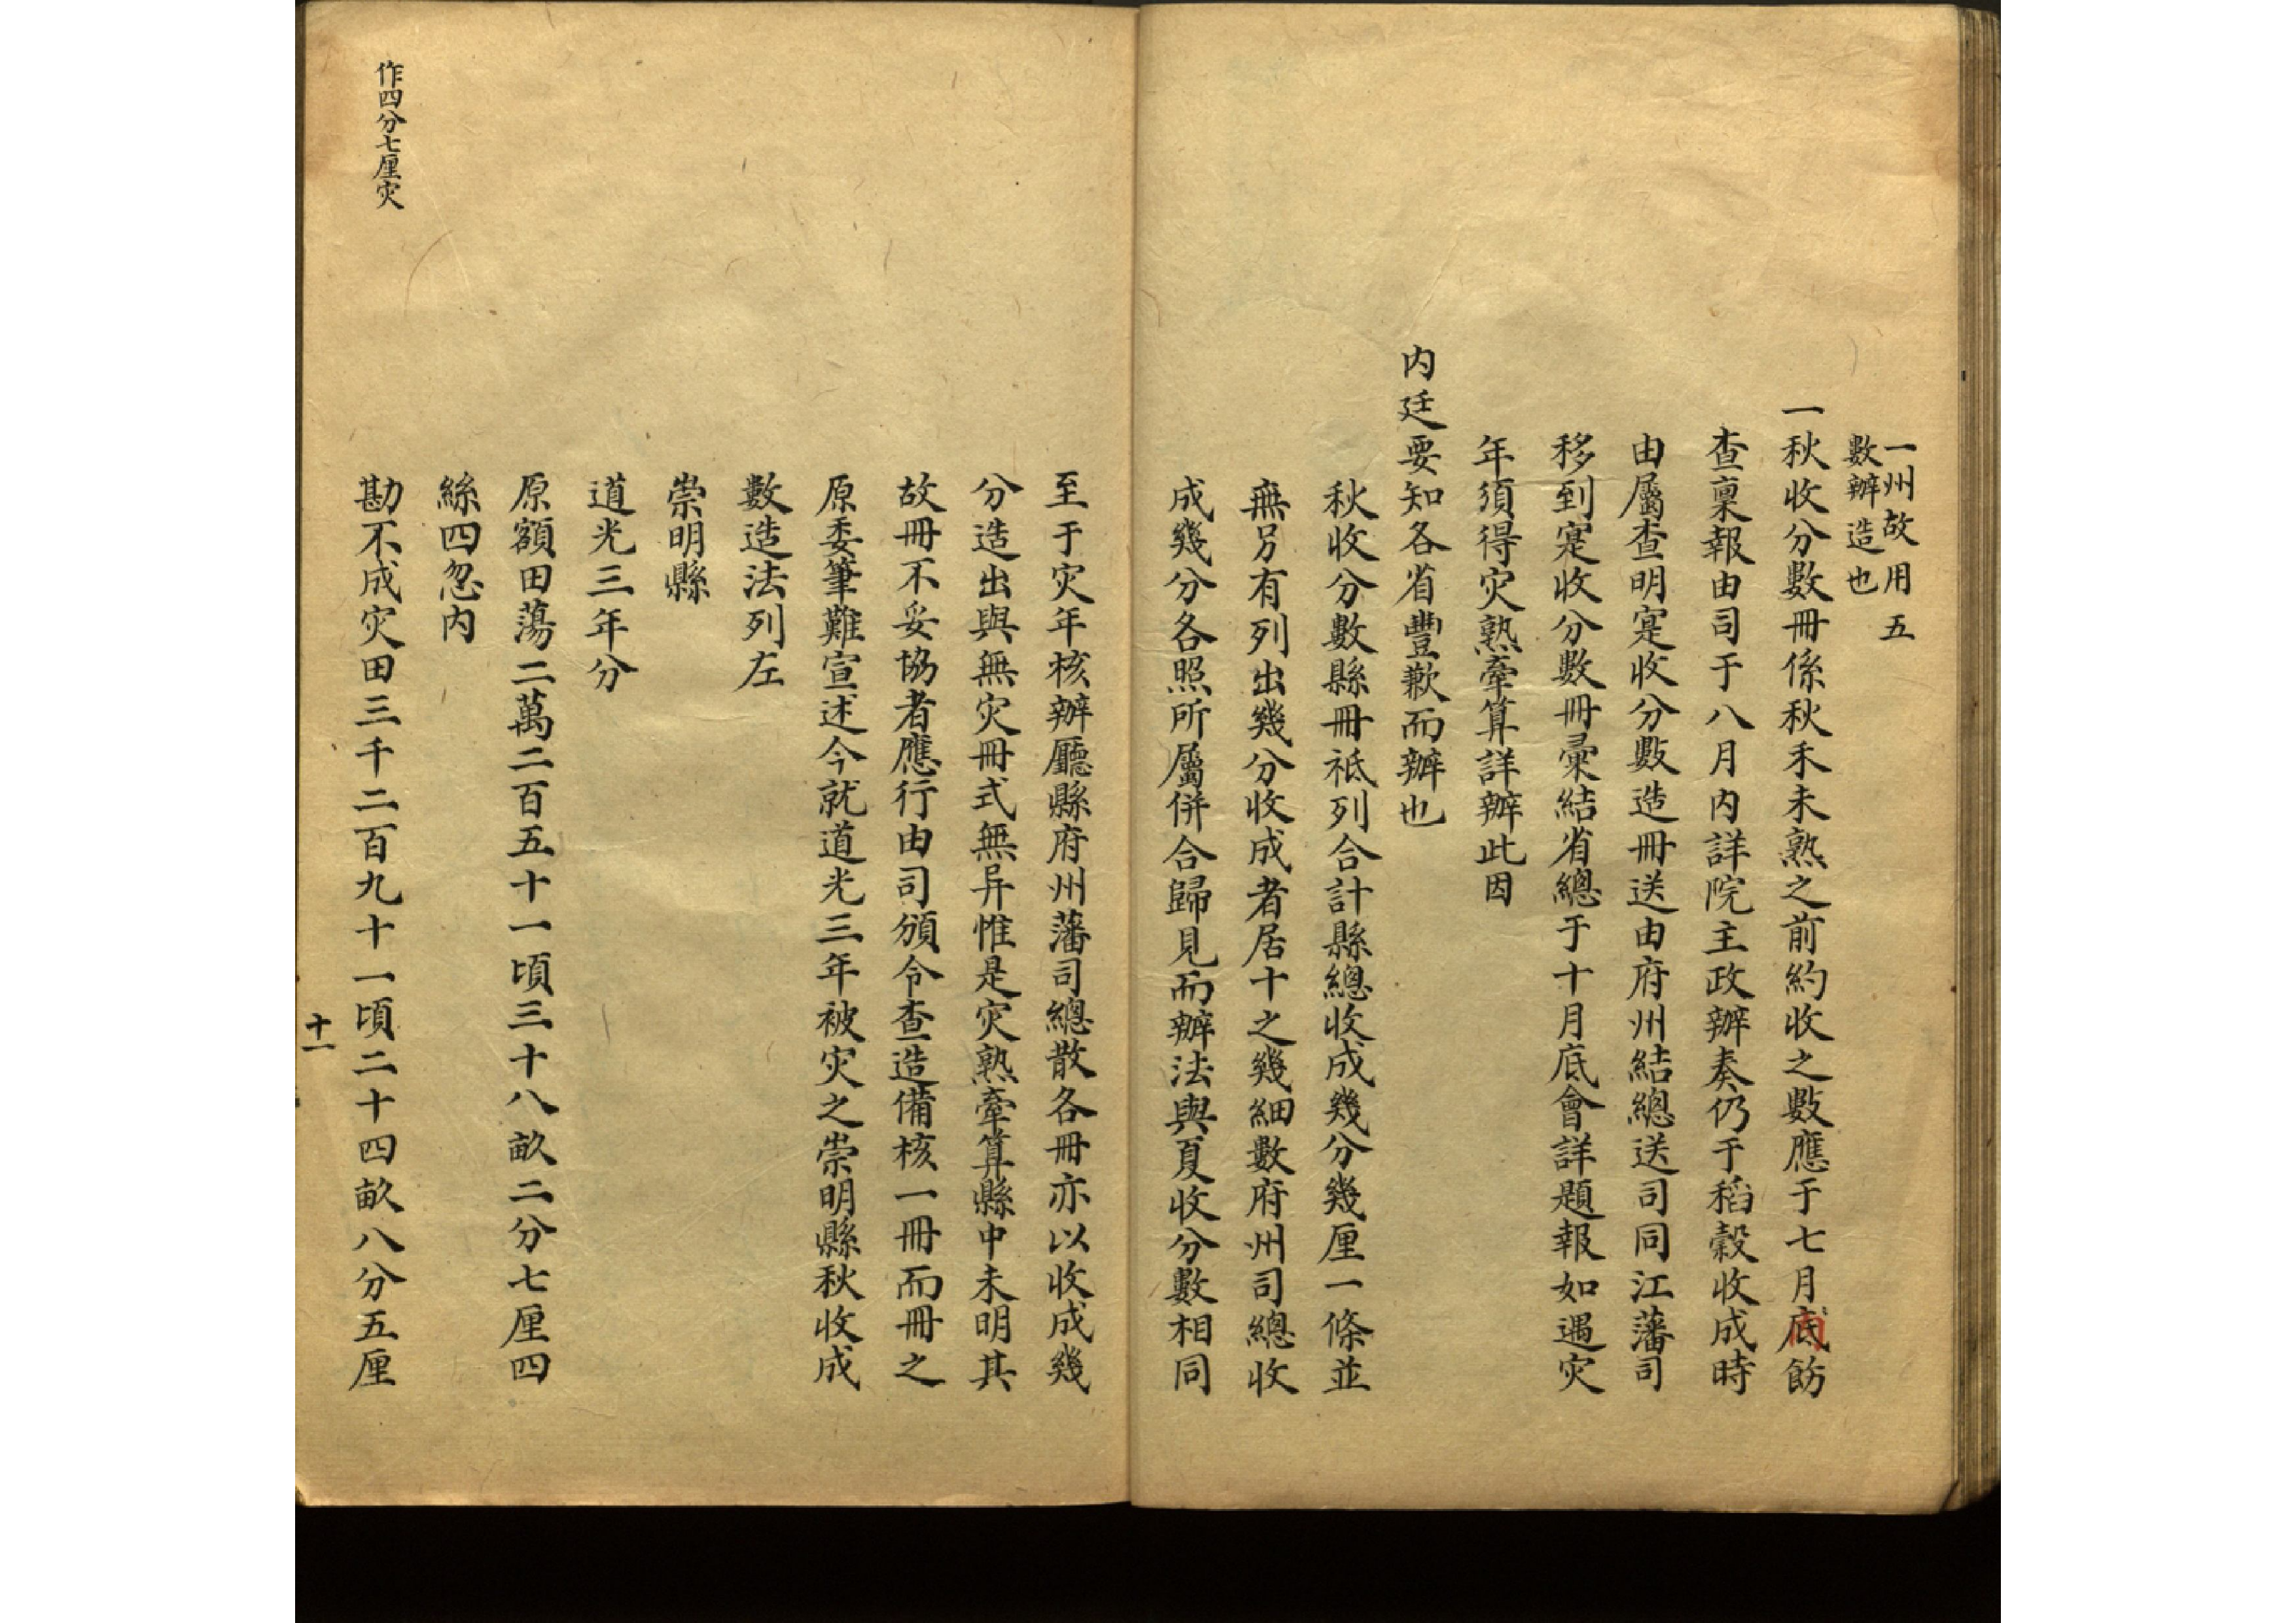 一州故用五
數辦造也
一秋收分數冊係秋禾未熟之前約收之數應于七月底飭
查稟報由司于八月内詳院主政辦奏仍于稻穀收成時
由屬查明寔收分數造冊送由府州結總送司同江藩司
移到寔收分數冊彙結省總于十月底會詳題報如遇灾
年須得灾熟牽算詳辦此因
内廷要知各省豐歉而辦也
秋收分數縣冊祗列合計縣總收成幾分幾厘一條並
無另有列出幾分收成者居十之幾細數府州司總收
成幾分各照所屬併合歸見而辦法與夏收分數相同
至于灾年核辦廳縣府州藩司總散各冊亦以收成幾
分造出與無灾冊式無异惟是灾熟牽算縣中未明其
故冊不妥協者應行由司頒令查造備核一冊而冊之
原委筆難宣述今就道光三年被灾之崇明縣秋收成
數造法列左
崇明縣
道光三年分
原額田蕩二萬二百五十一頃三十八畝二分七厘四
絲四忽内
作四分七厘灾
勘不成灾田三千二百九十一頃二十四畝八分五厘
十一